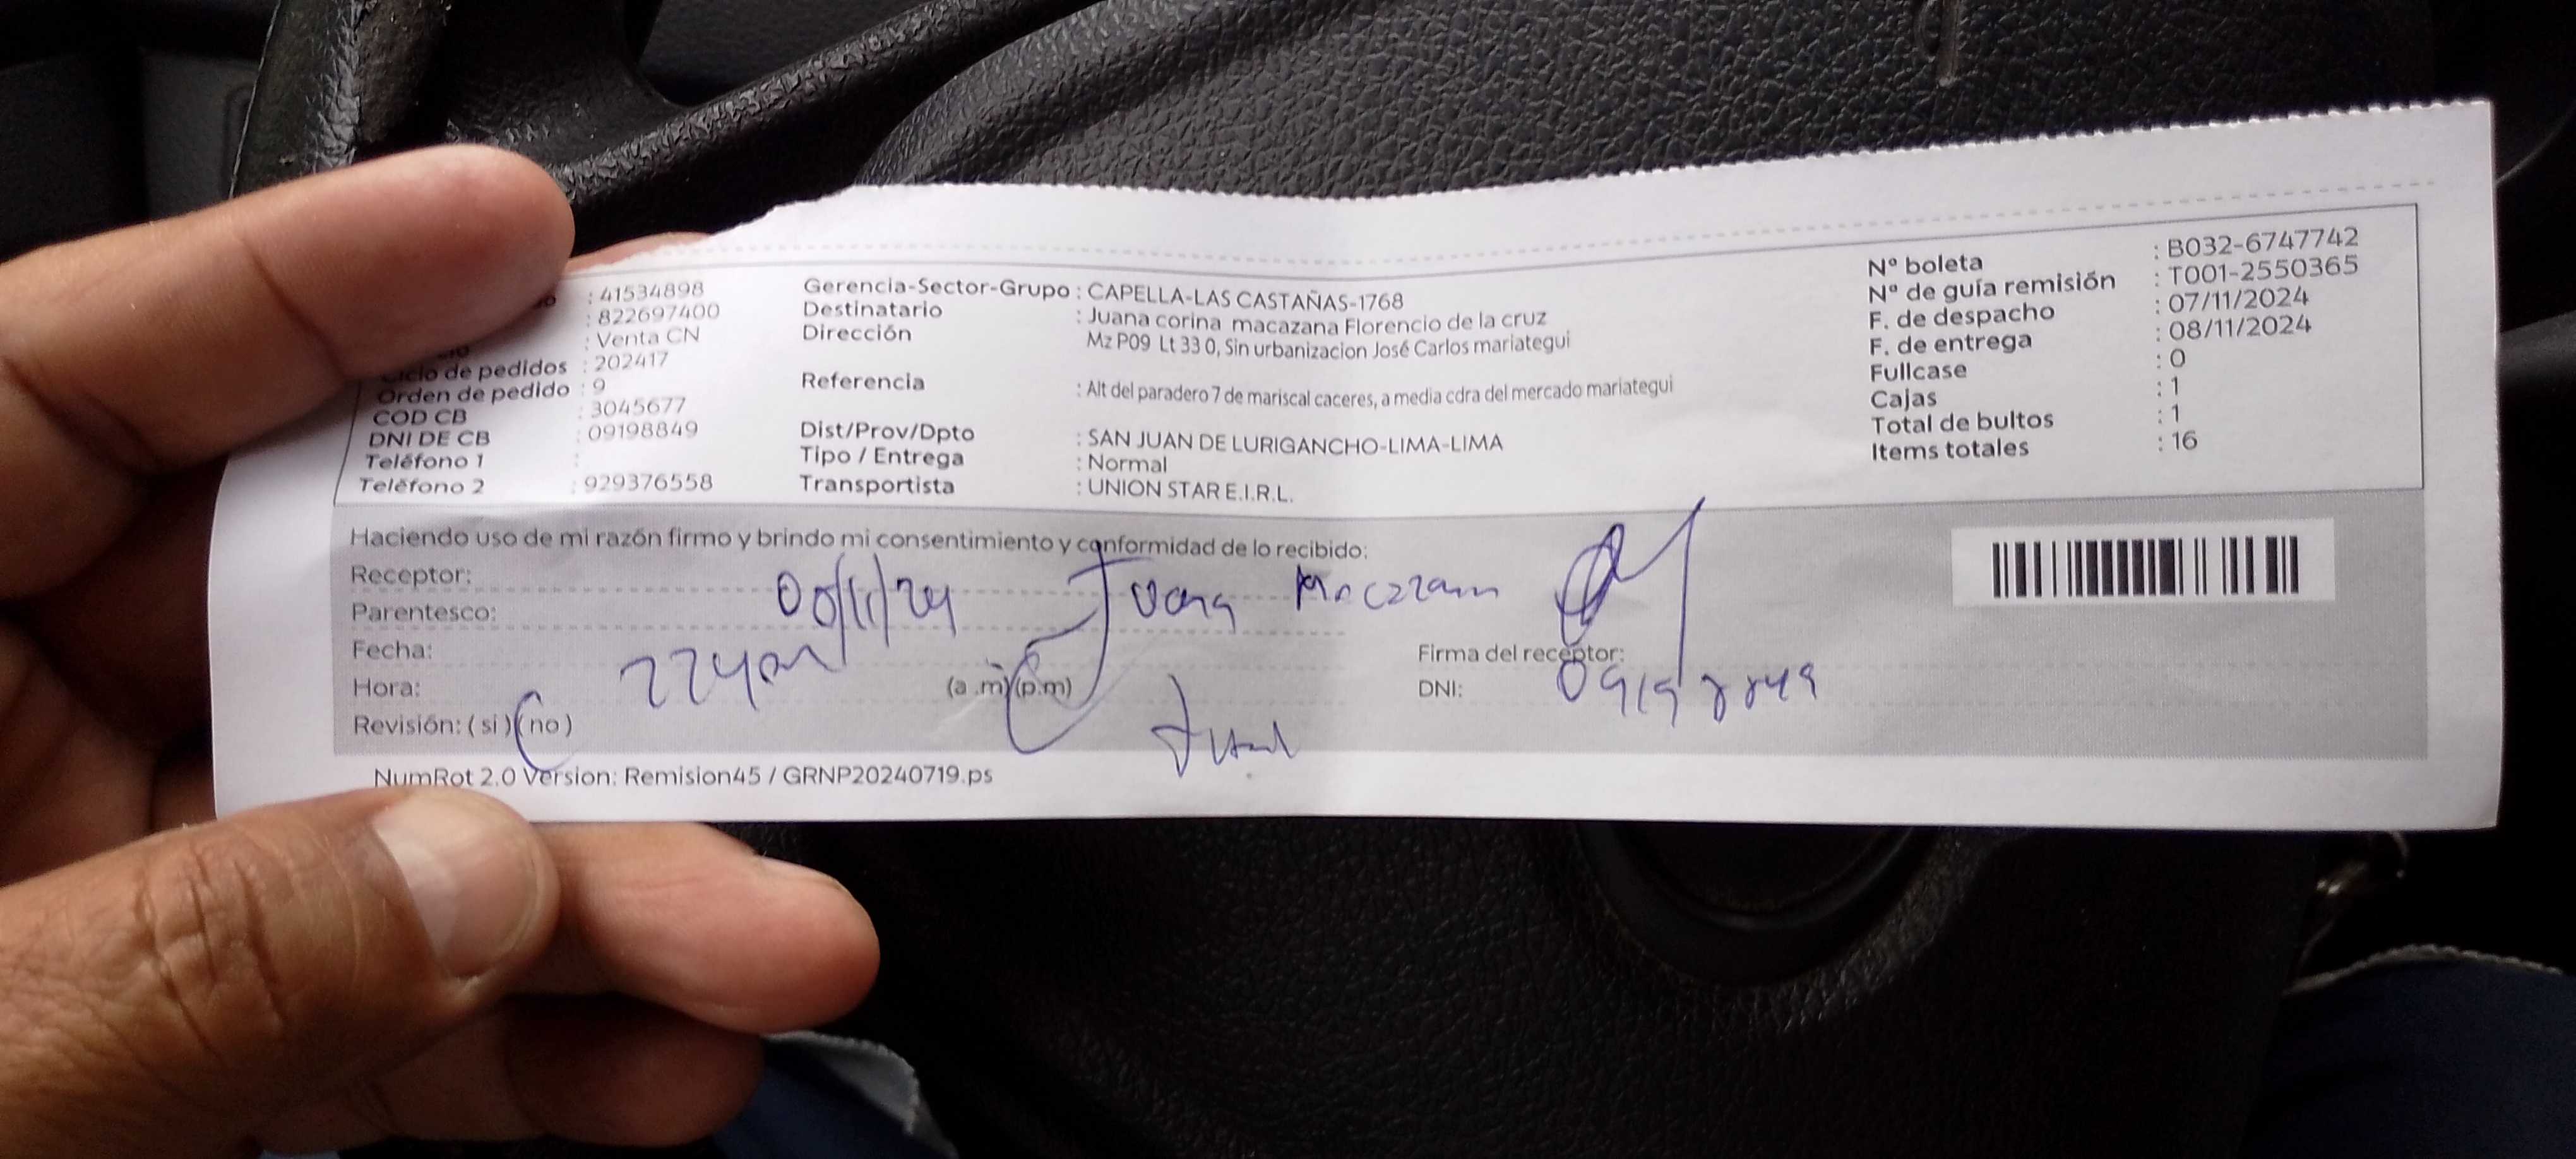 : 41534898
: 822697400
: Venta CN
Ciclo de pedidos : 202417
Orden de pedido : 9
COD CB : 3045677
DNI DE CB : 09198849
Teléfono 1 :
Teléfono 2 : 929376558
Gerencia-Sector-Grupo : CAPELLA-LAS CASTAÑAS-1768
Destinatario : Juana corina macazana Florencio de la cruz
Dirección Mz P09 Lt 33 0, Sin urbanizacion José Carlos mariategui
Referencia : Alt del paradero 7 de mariscal caceres, a media cdra del mercado mariategui
Dist/Prov/Dpto : SAN JUAN DE LURIGANCHO-LIMA-LIMA
Tipo / Entrega : Normal
Transportista : UNION STAR E.I.R.L.
Nº boleta : B032-6747742
Nº de guía remisión : T001-2550365
F. de despacho : 07/11/2024
F. de entrega : 08/11/2024
Fullcase : 0
Cajas : 1
Total de bultos : 1
Items totales : 16
Haciendo uso de mi razón firmo y brindo mi consentimiento y conformidad de lo recibido:
Receptor: Juana
Parentesco:
Fecha:
Hora: (a .m)(p.m)
Revisión: ( si ) ( no )
Firma del receptor:
DNI: 09198849
NumRot 2.0 Version: Remision45 / GRNP20240719.ps